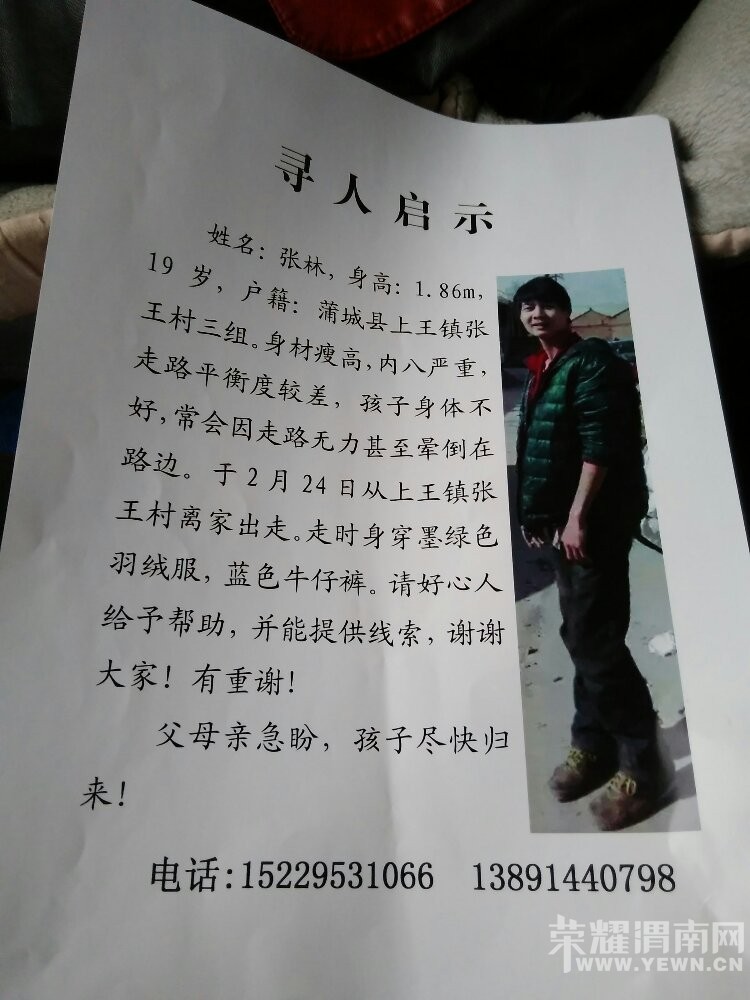 寻人启示
姓名：张林，身高：1.86m，
19岁，户籍：蒲城县上王镇张
王村三组。身材瘦高，内八严重，
走路平衡度较差，孩子身体不
好，常会因走路无力甚至晕倒在
路边。于2月24日从上王镇张
王村离家出走。走时身穿墨绿色
羽绒服，蓝色牛仔裤。请好心人
给予帮助，并能提供线索，谢谢
大家！有重谢！
父母亲急盼，孩子尽快归
来！
电话:15229531066 13891440798
荣耀渭南网
WWW.YEWN.CN